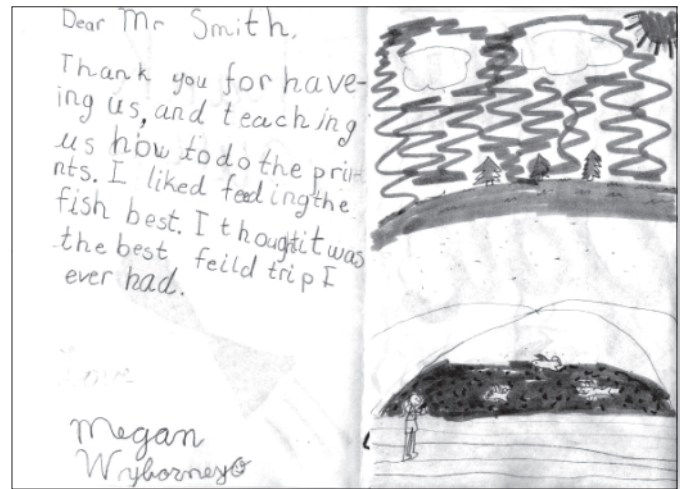 Dear Mr Smith,
Thank you for have-
ing us, and teaching
us how to do the pri-
nts. I liked feeding the
fish best. I thought it was
the best feild trip I
ever had.
Love
Megan